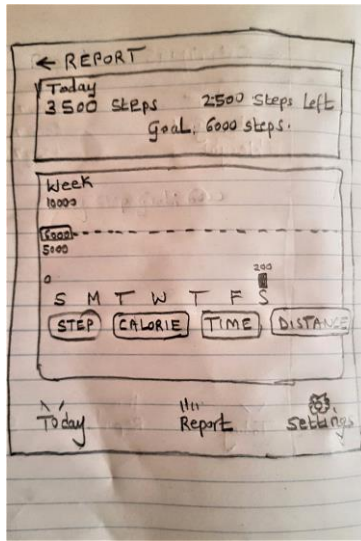 ← REPORT
Today
3500 Steps 2500 Steps Left
Goal, 6000 steps.
Week
10000
6000
5000
200
0
S M T W T F S
STEP CALORIE TIME DISTANCE
Today Report Settings